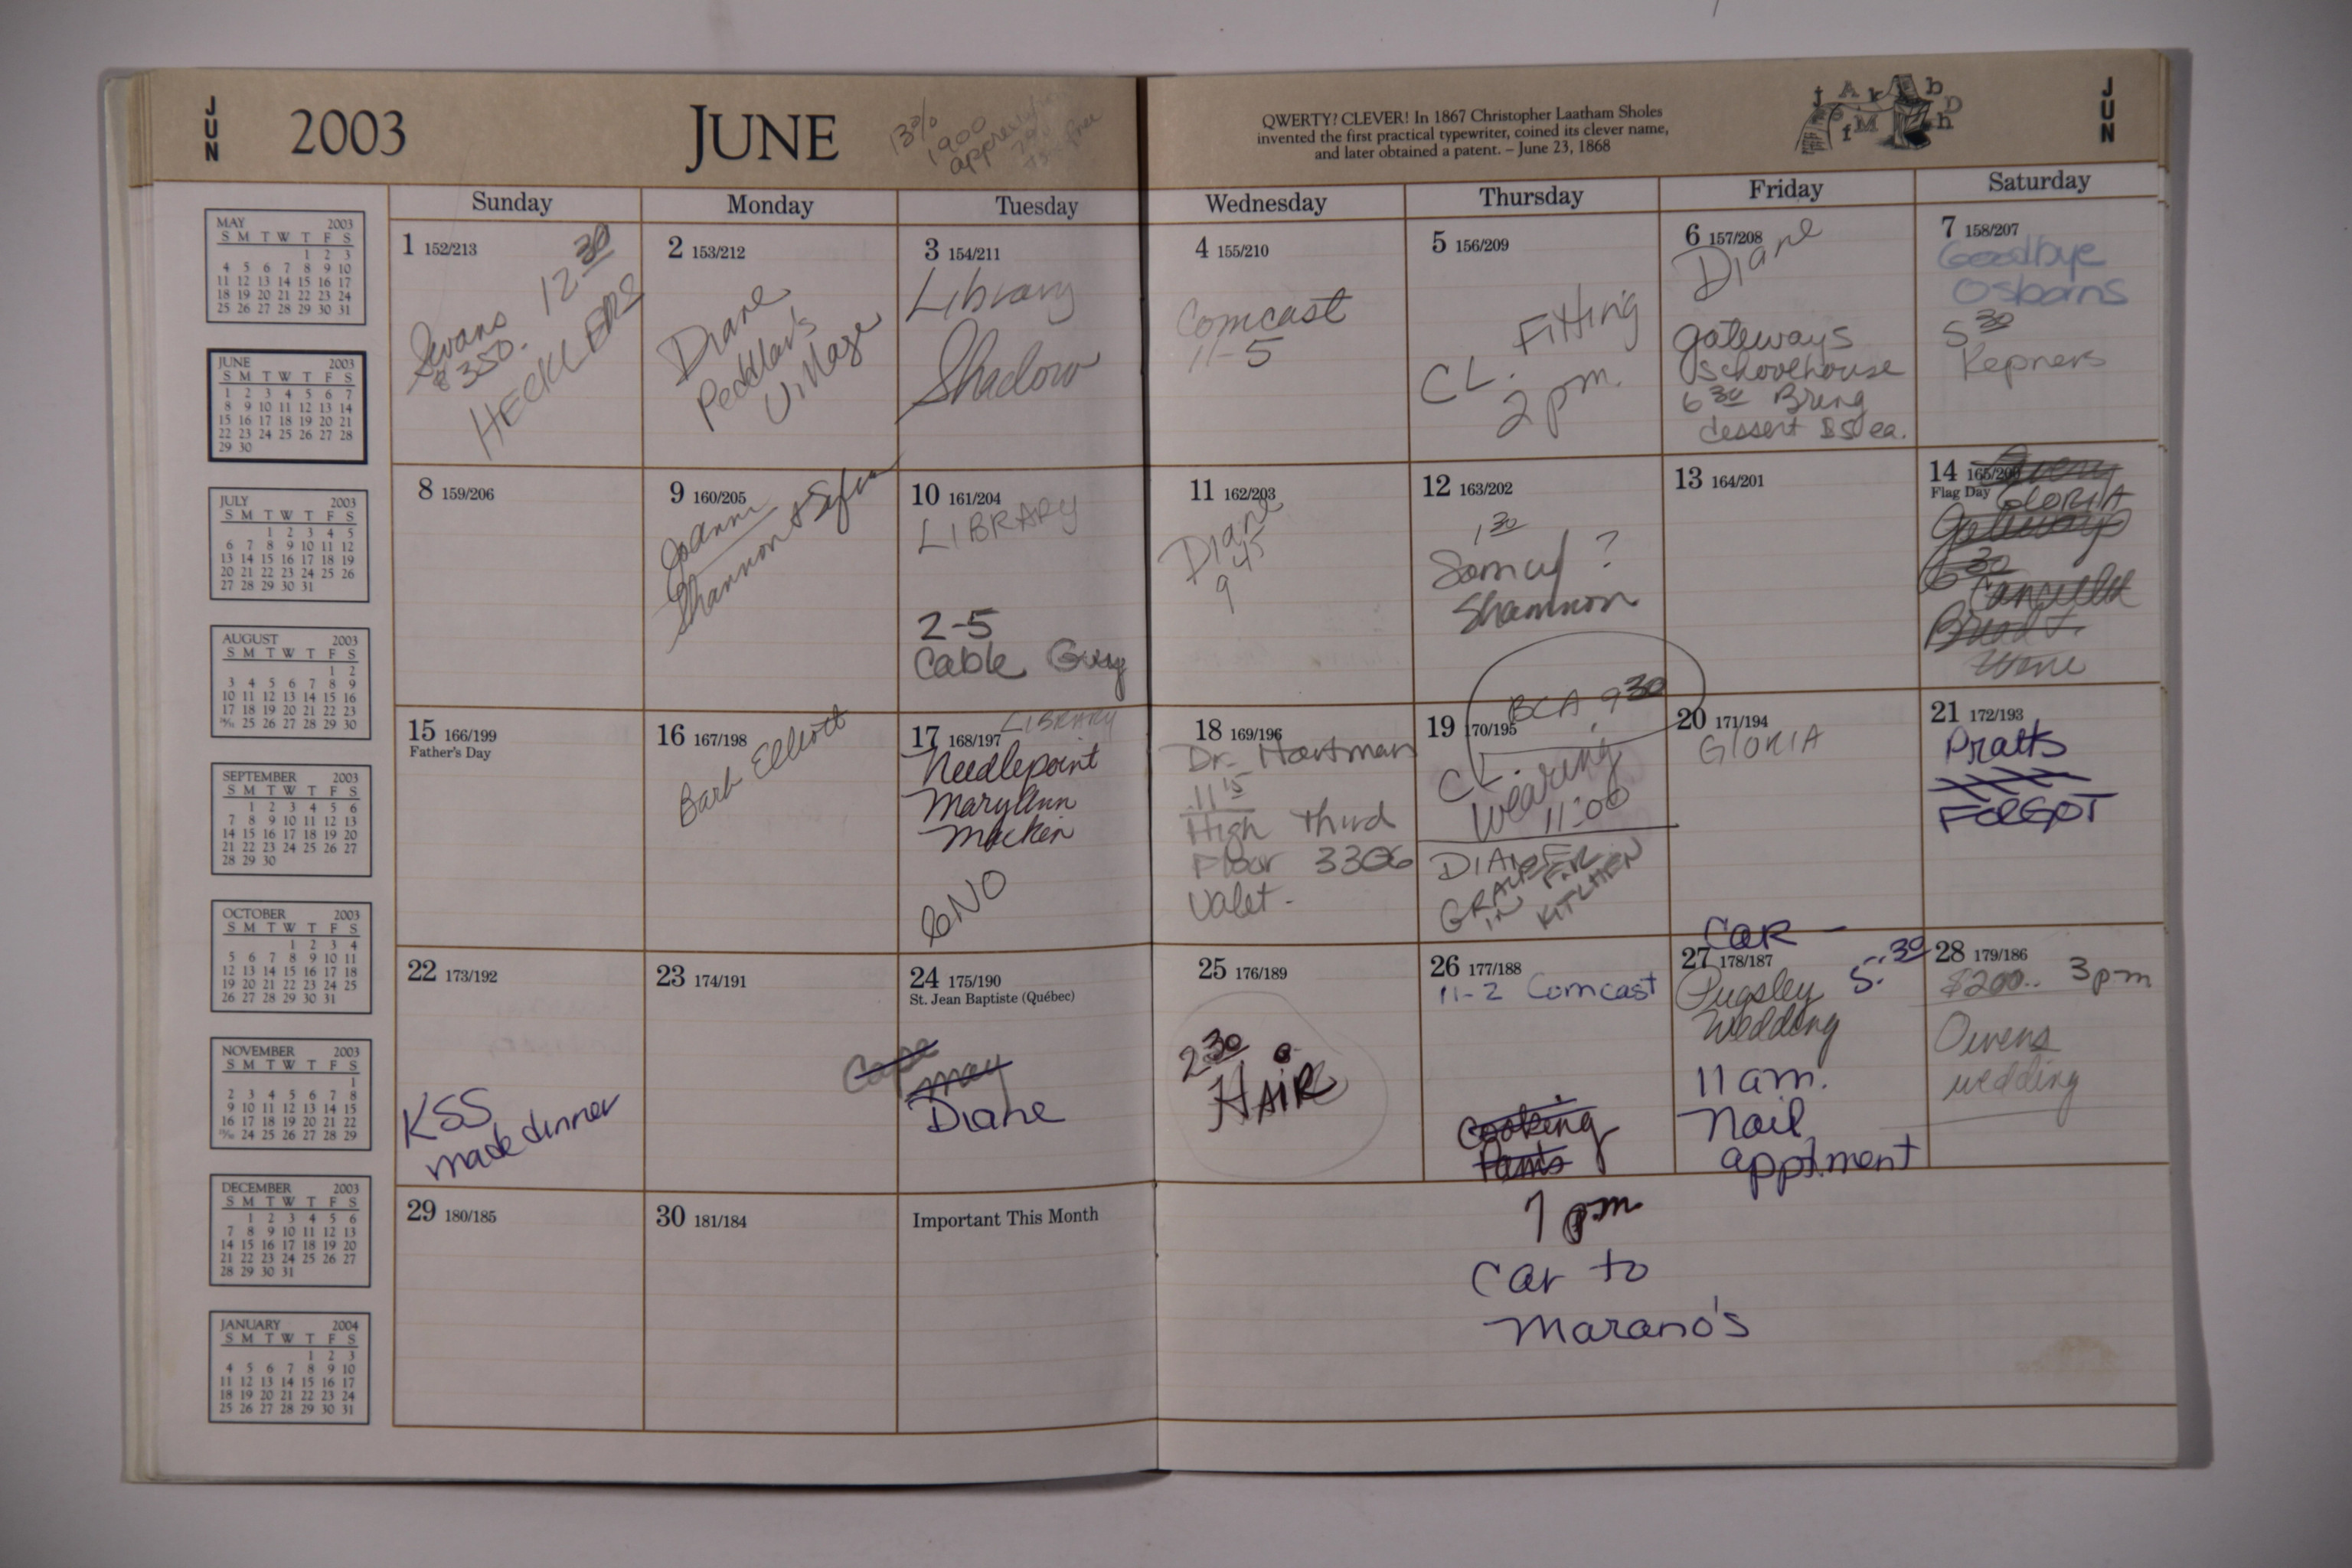 JUN
2003
JUNE
13%
1900
QWERTY? CLEVER! In 1867 Christopher Laatham Sholes
invented the first practical typewriter, coined its clever name,
and later obtained a patent. – June 23, 1868
j A k b
D
f M h
JUN
Sunday Monday Tuesday Wednesday Thursday Friday Saturday
MAY 2003
S M T W T F S
1 2 3
4 5 6 7 8 9 10
11 12 13 14 15 16 17
18 19 20 21 22 23 24
25 26 27 28 29 30 31
JUNE 2003
S M T W T F S
1 2 3 4 5 6 7
8 9 10 11 12 13 14
15 16 17 18 19 20 21
22 23 24 25 26 27 28
29 30
JULY 2003
S M T W T F S
1 2 3 4 5
6 7 8 9 10 11 12
13 14 15 16 17 18 19
20 21 22 23 24 25 26
27 28 29 30 31
AUGUST 2003
S M T W T F S
1 2
3 4 5 6 7 8 9
10 11 12 13 14 15 16
17 18 19 20 21 22 23
24/31 25 26 27 28 29 30
SEPTEMBER 2003
S M T W T F S
1 2 3 4 5 6
7 8 9 10 11 12 13
14 15 16 17 18 19 20
21 22 23 24 25 26 27
28 29 30
OCTOBER 2003
S M T W T F S
1 2 3 4
5 6 7 8 9 10 11
12 13 14 15 16 17 18
19 20 21 22 23 24 25
26 27 28 29 30 31
NOVEMBER 2003
S M T W T F S
1
2 3 4 5 6 7 8
9 10 11 12 13 14 15
16 17 18 19 20 21 22
23/30 24 25 26 27 28 29
DECEMBER 2003
S M T W T F S
1 2 3 4 5 6
7 8 9 10 11 12 13
14 15 16 17 18 19 20
21 22 23 24 25 26 27
28 29 30 31
JANUARY 2004
S M T W T F S
1 2 3
4 5 6 7 8 9 10
11 12 13 14 15 16 17
18 19 20 21 22 23 24
25 26 27 28 29 30 31
1 152/213
12 30
$350.
HECKLERS
2 153/212
Diane
Peddlar's
Village
3 154/211
Library
Shadow
4 155/210
Comcast
11-5
5 156/209
Fitting
CL.
2 pm.
6 157/208
Diane
Gateways
Schoolhouse
6 30 Bring
dessert $5 ea.
7 158/207
Goodbye
Osborns
5 30
Kepners
8 159/206
9 160/205
Joanne
Shannon & Sylvia
10 161/204
LIBRARY
2-5
Cable Guy
11 162/203
Diane
9 45
12 163/202
1 30
?
Shannon
13 164/201
14 165/200
Flag Day
GLORIA
Gateways
6 30
Cancelled
Bread &
Wine
15 166/199
Father's Day
16 167/198
Barb Elliott
17 168/197
LIBRARY
Needlepoint
MaryAnn
Macken
GNO
18 169/196
Dr. Hartman
11 15
High Third
Floor 3306
Valet -
BCA 9 30
19 170/195
CL.
Wearing
11:00
DIANE
IN FOR
KITCHEN
20 171/194
GLORIA
21 172/193
Pratts
FORGOT
22 173/192
KSS
made dinner
23 174/191
24 175/190
St. Jean Baptiste (Québec)
Cape
May
Diane
25 176/189
2 30
HAIR
26 177/188
11-2 Comcast
Cooking
Pants
7 pm
Car to
Marano's
CAR -
5:30
27 178/187
Pugsley
Wedding
11 am.
Nail
apptment
28 179/186
$200.. 3pm
Owens
wedding
29 180/185
30 181/184
Important This Month